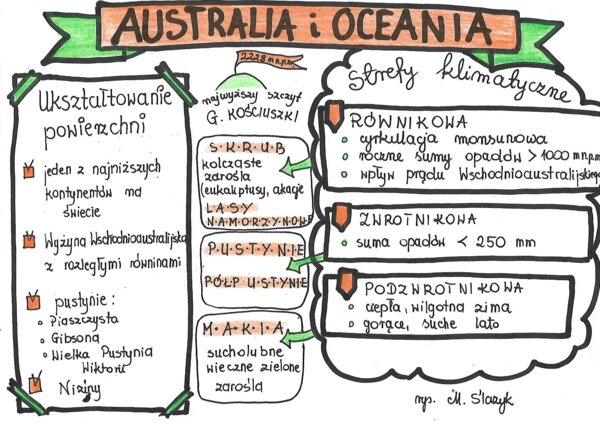 AUSTRALIA i OCEANIA
Ukształtowanie
powierzchni
jeden z najniższych
kontynentów na
świecie
Wyżyna Wschodnioaustralijska
z rozległymi równinami
pustynie:
Piaszczysta
Gibsona
Wielka Pustynia
Wiktorii
Niziny
2228 m n.p.m.
najwyższy szczyt
G. KOŚCIUSZKI
SKRUB
kolczaste
zarośla
(eukaliptusy, akacje
LASY
NAMORZYNOWE
PUSTYNIE
PÓŁPUSTYNIE
MAKIA
sucholubne
wiecznie zielone
zarośla
Strefy klimatyczne
RÓWNIKOWA
cyrkulacja monsunowa
roczne sumy opadów > 1000 m n.p.m.
wpływ prądu Wschodnioaustralijskiego
ZWROTNIKOWA
suma opadów < 250 mm
PODZWROTNIKOWA
ciepła, wilgotna zima
gorące, suche lato
rys. M. Ślazyk